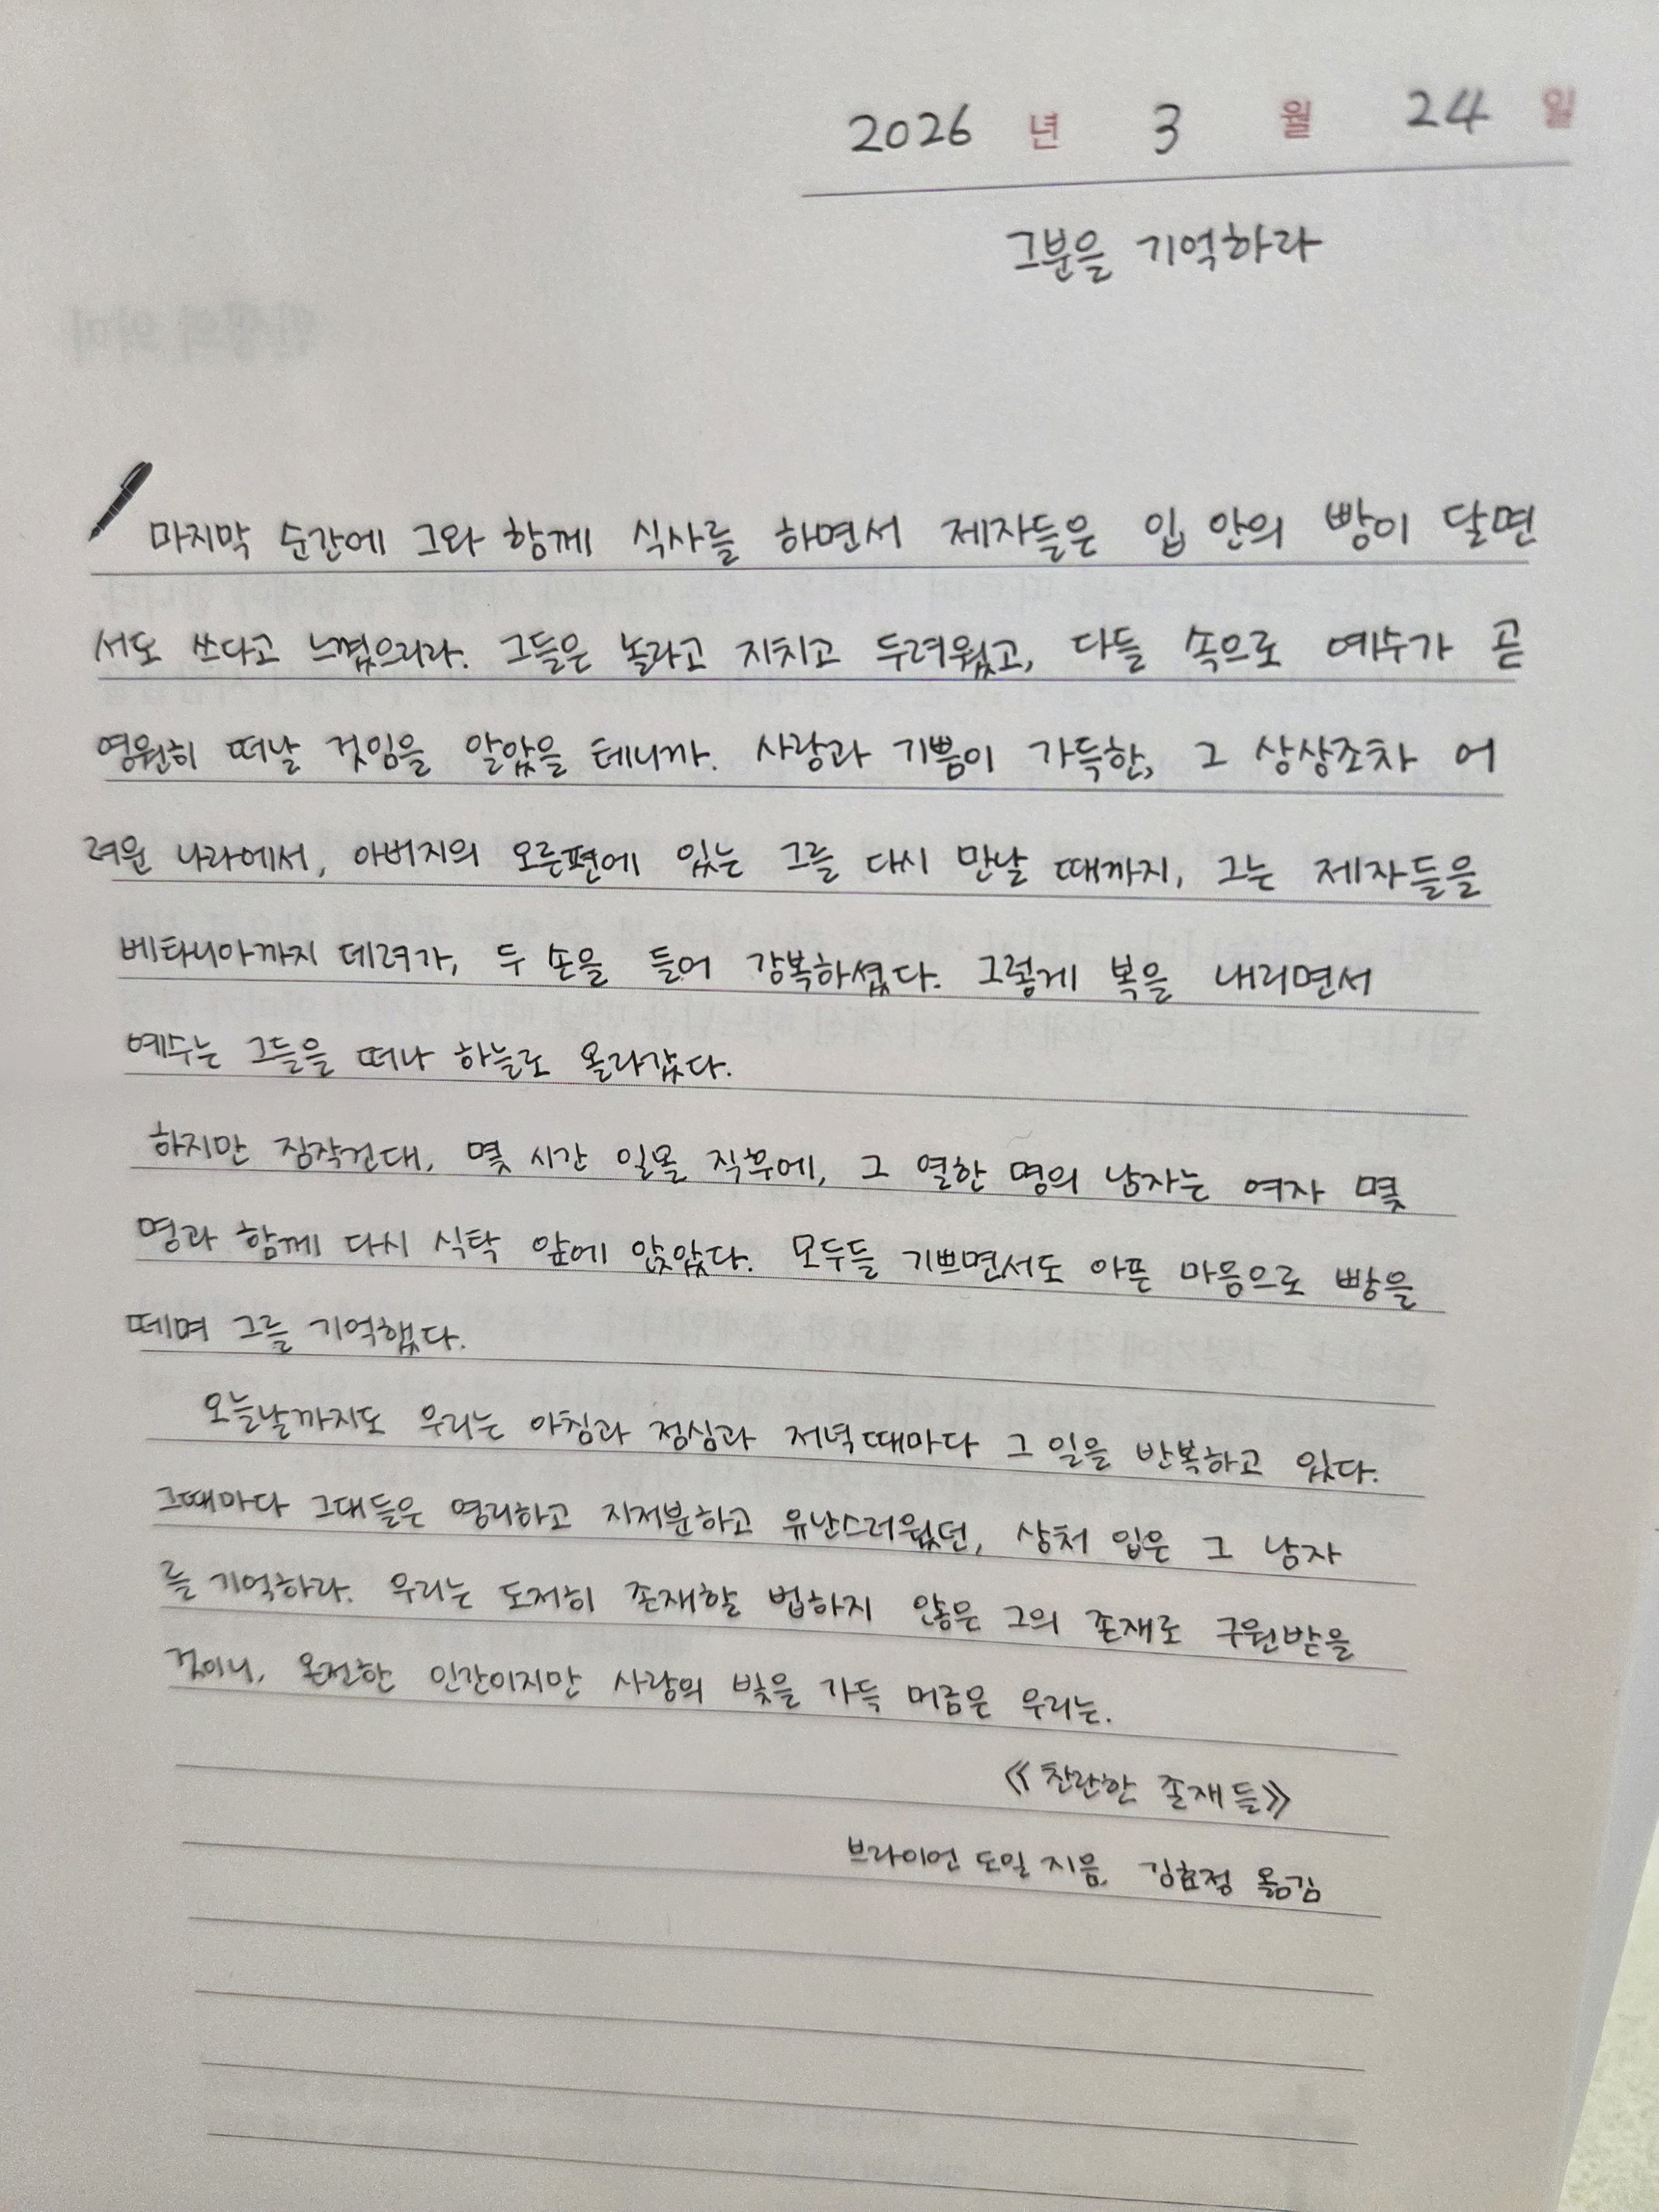 2026 년 3 월 24 일
그분을 기억하라
마지막 순간에 그와 함께 식사를 하면서 제자들은 입 안의 빵이 달면
서도 쓰다고 느꼈으리라. 그들은 놀라고 지치고 두려웠고, 다들 속으로 예수가 곧
영원히 떠날 것임을 알았을 테니까. 사랑과 기쁨이 가득한, 그 상상조차 어
려운 나라에서, 아버지의 오른편에 있는 그를 다시 만날 때까지, 그는 제자들을
베타니아까지 데려가, 두 손을 들어 강복하셨다. 그렇게 복을 내리면서
예수는 그들을 떠나 하늘로 올라갔다.
하지만 짐작건대, 몇 시간 일몰 직후에, 그 열한 명의 남자는 여자 몇
명과 함께 다시 식탁 앞에 앉았다. 모두들 기쁘면서도 아픈 마음으로 빵을
떼며 그를 기억했다.
오늘날까지도 우리는 아침과 점심과 저녁때마다 그 일을 반복하고 있다.
그때마다 그대들은 영리하고 지저분하고 유난스러웠던, 상처 입은 그 남자
를 기억하라. 우리는 도저히 존재할 법하지 않은 그의 존재로 구원받을
것이니, 온전한 인간이지만 사랑의 빛을 가득 머금은 우리는.
《찬란한 존재들》
브라이언 도일 지음, 김효정 옮김